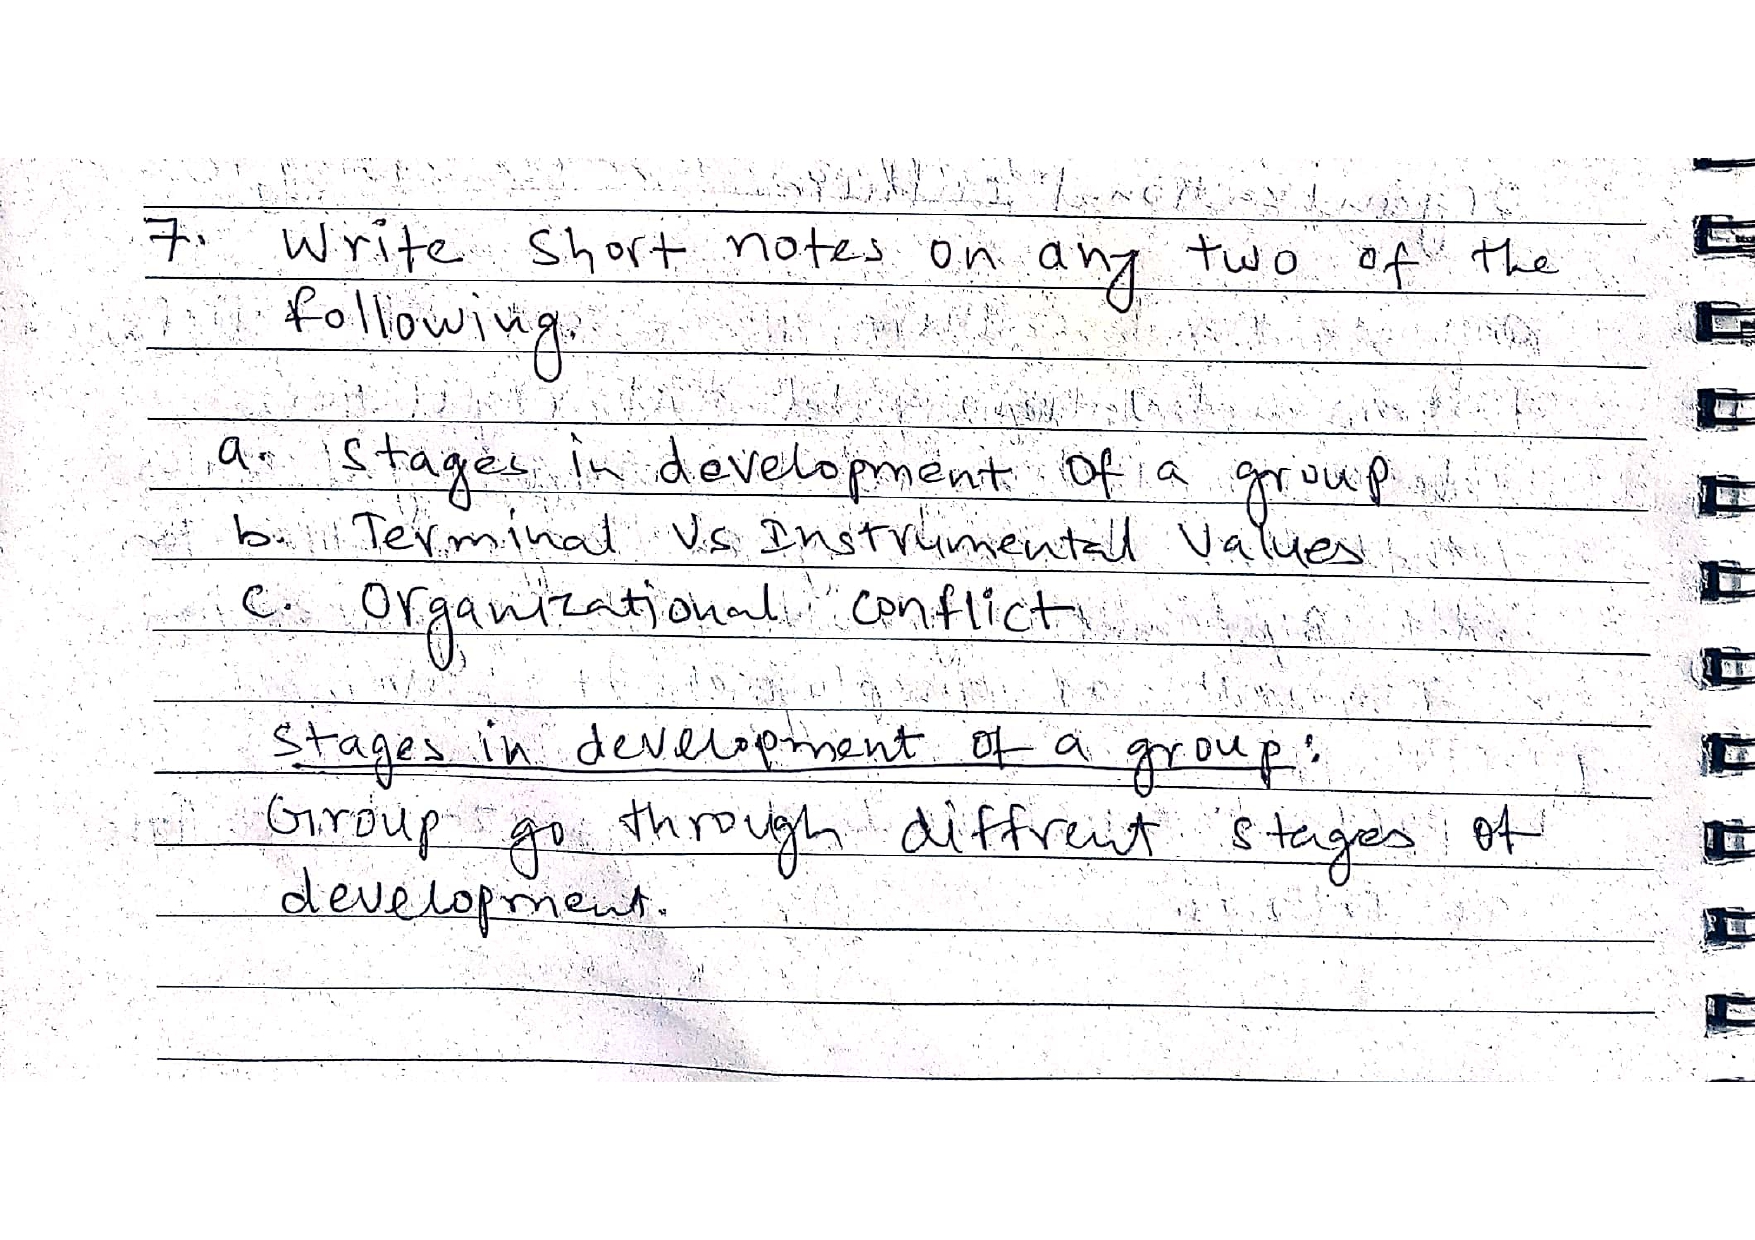 7. Write short notes on any two of the
following.
a. Stages in development of a group
b. Terminal Vs Instrumental Values
c. Organizational conflict
Stages in development of a group:
Group go through diffrent stages of
development.